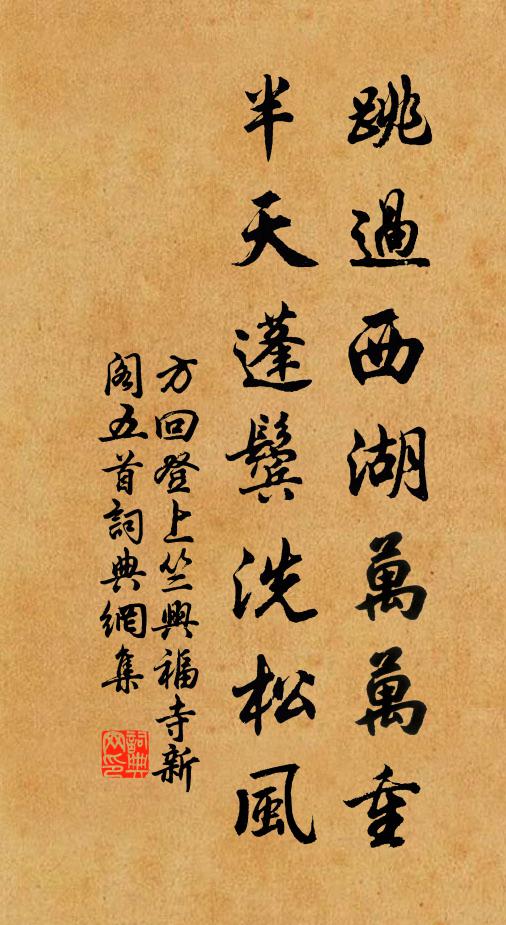 跳過西湖萬萬重
半天蓬鬢洗松風
方回登上竺興福寺新
閣五首詞典網集
詞典
网印